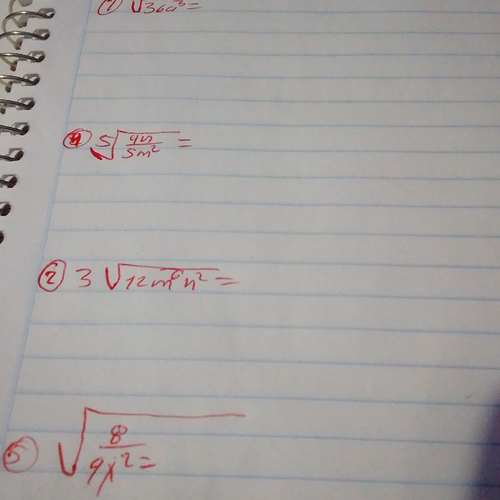 ① √36a³=
④ 5√4n/5m²=
② 3 √12m⁸n²=
⑤ √8/9y²=